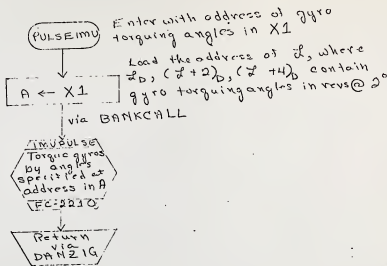 PULSEIMU
Enter with address of gyro
torquing angles in X1
A ← X1
Load the address of L, where
L_D, (L+2)_D, (L+4)_D contain
gyro torquing angles in revs@ 2⁰
via BANKCALL
IMUPULSE
Torque gyros
by angles
specified at
address in A
FC-2210
Return
via
DANZIG